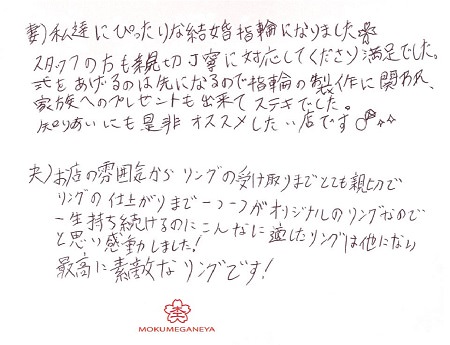 妻)私達にぴったりな結婚指輪になりました
スタッフの方も親切丁寧に対応してくださり満足でした。
式をあげるのは先になるので指輪の製作に関われ、
家族へのプレゼントも出来てステキでした。
知りあいにも是非オススメしたい店です
夫)お店の雰囲気からリングの受け取りまでとても親切で
リングの仕上がりまで一つ一つがオリジナルのリングなので
一生持ち続けるのにこんなに適したリングは他にない
と思い感動しました!
最高に素敵なリングです!
MOKUMEGANEYA